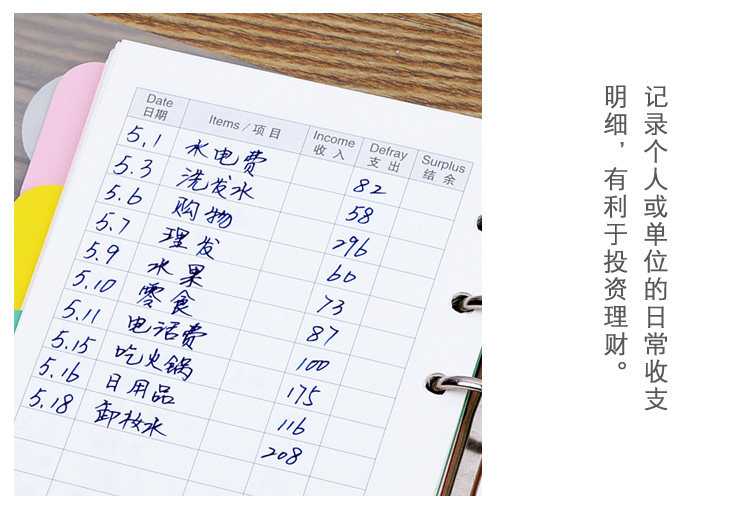 Date 日期 Items / 项目 Income 收入 Defray 支出 Surplus 结余
5.1 水电费 82
5.3 洗发水 58
5.6 购物 296
5.7 理发 60
5.9 水果 73
5.10 零食 87
5.11 电话费 100
5.15 吃火锅 175
5.16 日用品 116
5.18 卸妆水 208
记录个人或单位的日常收支
明细，有利于投资理财。